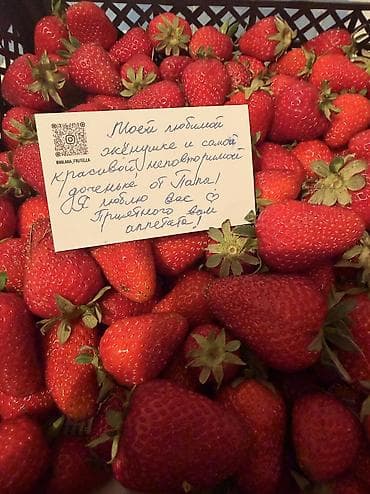 @MILANA_FRUTELLA
Моей любимой
женушке и самой
красивой, неповторимой
доченьке от Папа!
Я люблю Вас ♡
Приятного вам
аппетита!